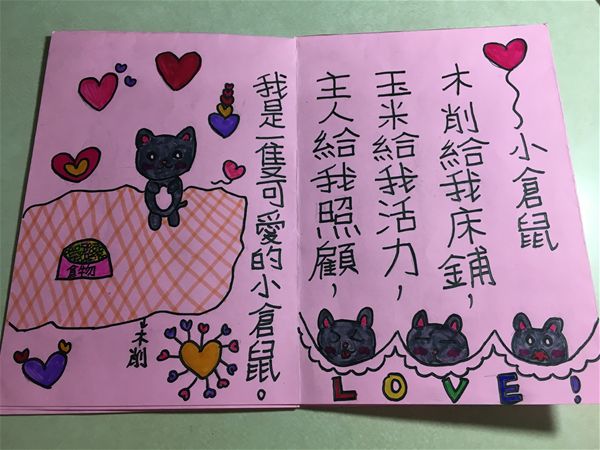 小倉鼠
木削給我床鋪，
玉米給我活力，
主人給我照顧，
我是一隻可愛的小倉鼠。
食物
木削
LOVE!